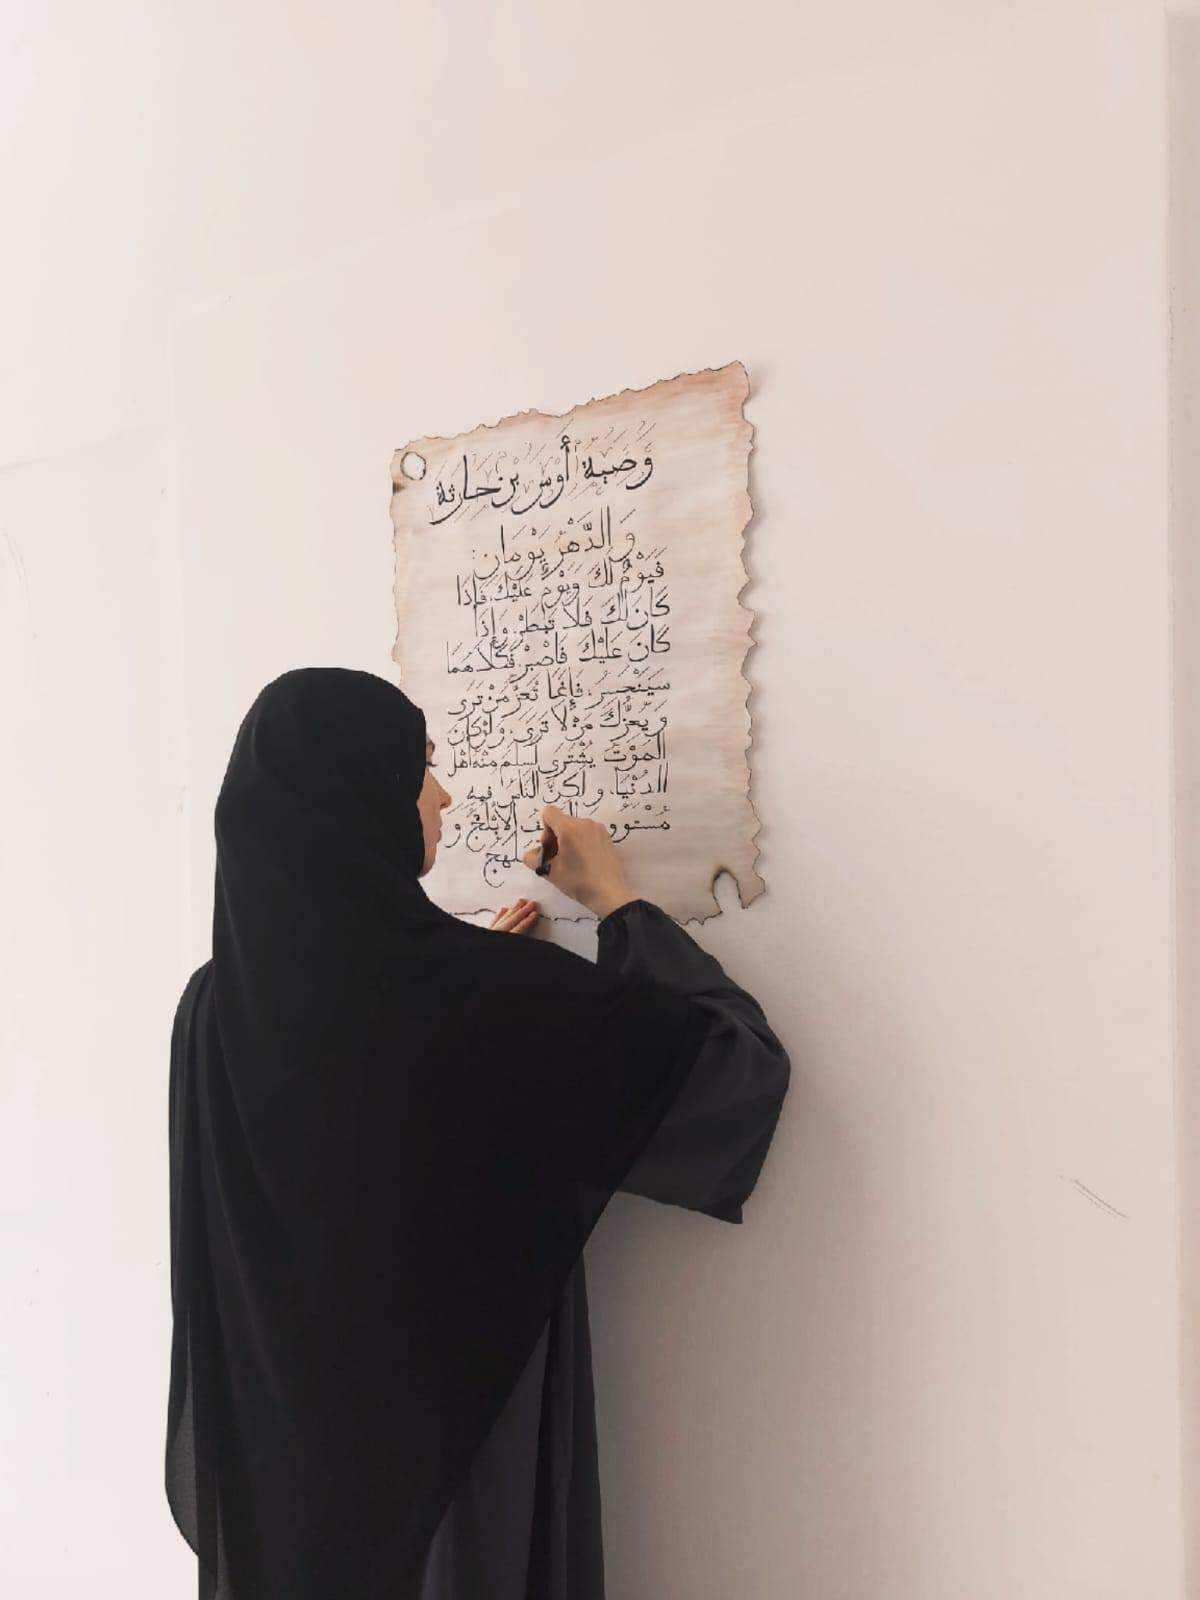 وَصِيَة أَوْس بْن حَارثة
وَ الدَّهْرُ يَوْمَان:
فَيَوْمٌ لَكَ وَيَوْمٌ عَلَيْكَ، فَإِذَا
كَانَ لَكَ فَلَا تَبْطَرْ، وَإِذَا
كَانَ عَلَيْكَ فَاصْبِرْ، فَكِلَاهُمَا
سَيَنْحَسِرُ، فَإِنَّمَا تُعَزُّ مَنْ تَرَى
وَ يَعِزُّكَ مَنْ لَا تَرَى، وَلَوْ كَانَ
الْمَوْتُ يُشْتَرَى لَسَلِمَ مِنْهُ أَهْلُ
الدُنْيَا، وَلَكِنَّ النَّاسَ فِيهِ
مُسْتَوُو الأَبْلَجُ وَ